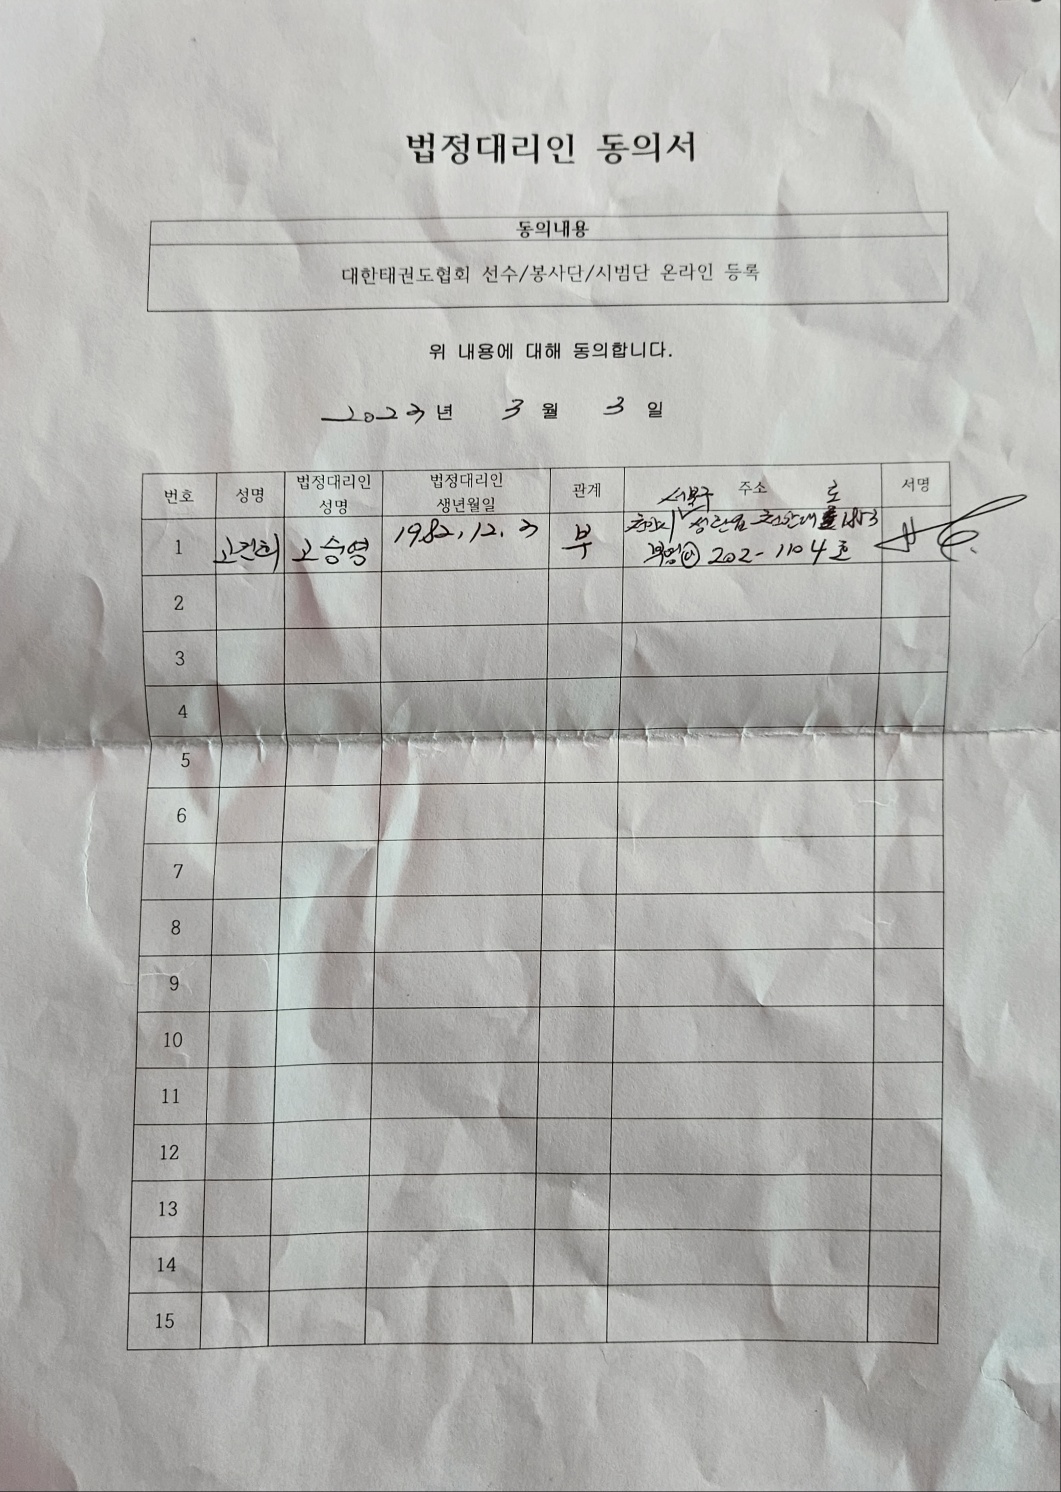 법정대리인 동의서
동의내용
대한태권도협회 선수/봉사단/시범단 온라인 등록
위 내용에 대해 동의합니다.
2023년 3월 3일
번호 성명 법정대리인 성명 법정대리인 생년월일 관계 주소 서명
1 고건희 고승영 1982.12.3 부 천안시 서북구 성환읍 천안대로 1853
부영 202-1104호
2
3
4
5
6
7
8
9
10
11
12
13
14
15